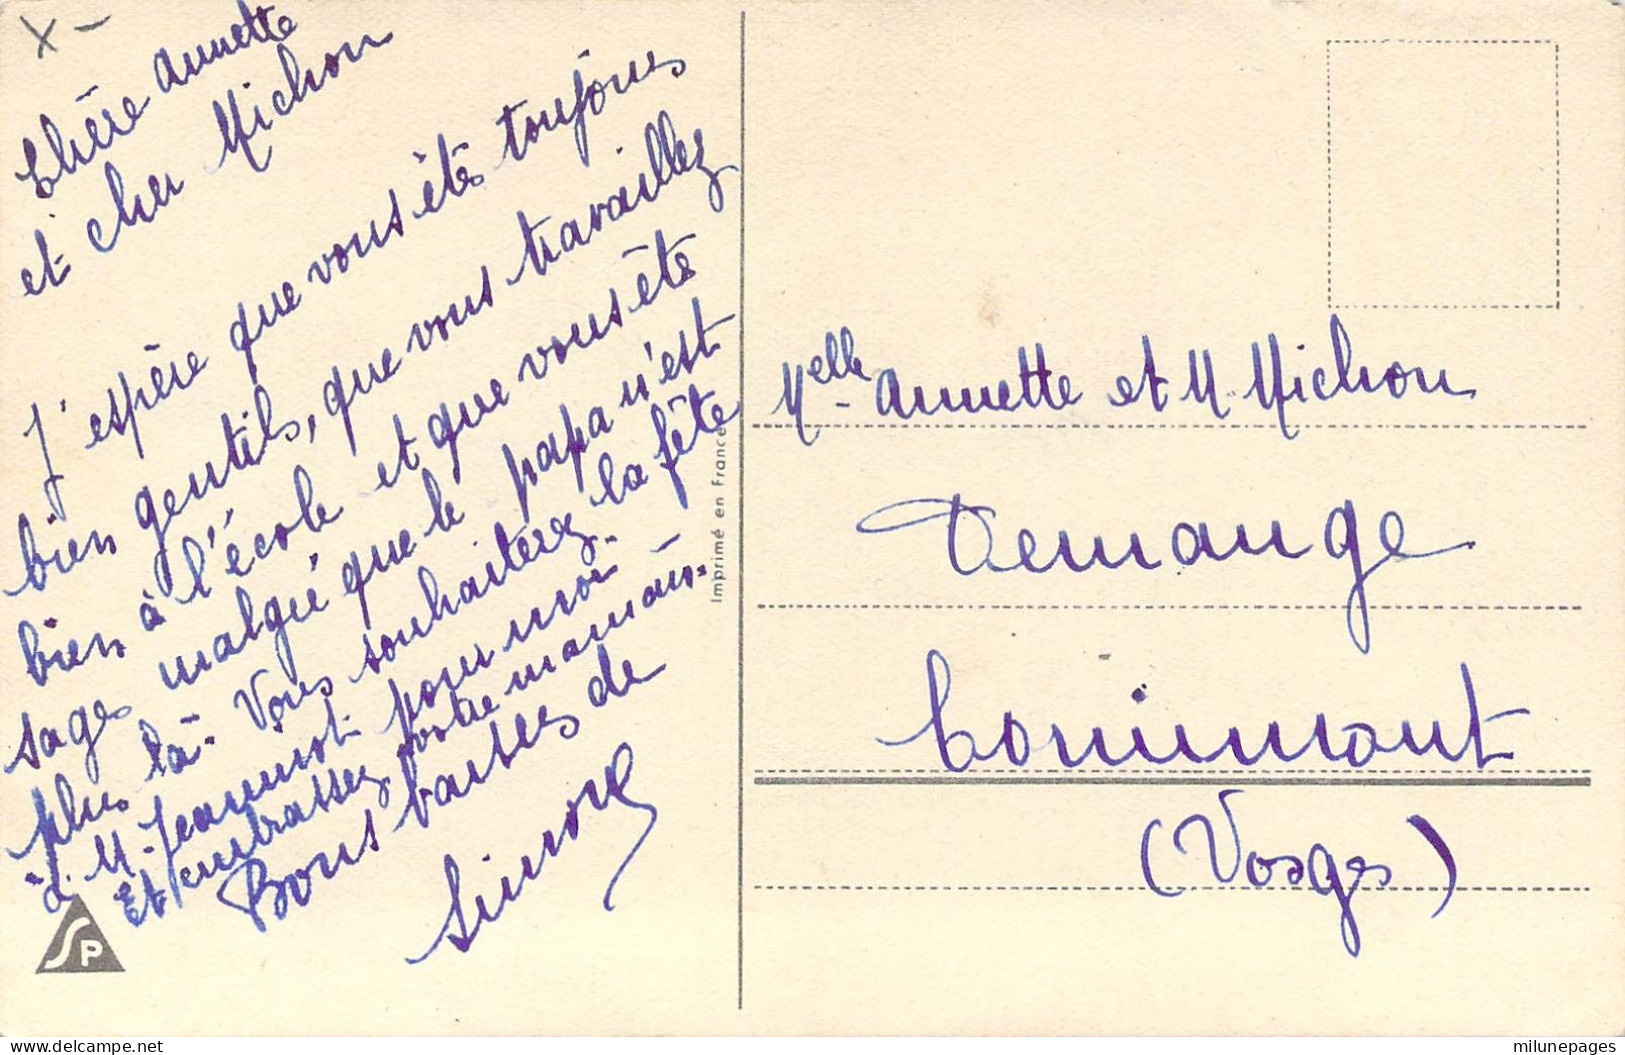 X -
Chère Annette
et cher Michon
J'espère que vous êtes toujours
bien gentils, que vous travaillez
bien à l'école et que vous ête
sages malgré que le papa n'est
plus là. Vous souhaiterez la fête
à M. Jeannot pour moi.
Et embrassez votre maman.
Bons baises de
Simone
SP
Imprimé en France
Melle Annette et M. Michon
Demange
Cornimont
(Vosges)
milunepages